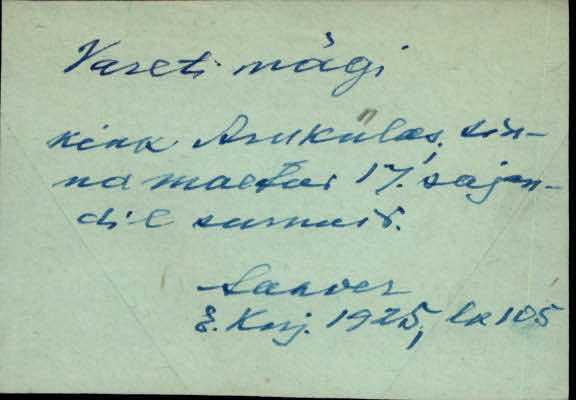 Vareti mägi
kink Arukülas, sin-
na maetai 17. sajan-
dil surnuid.
Saaver
E. Kirj. 1925, lk 105